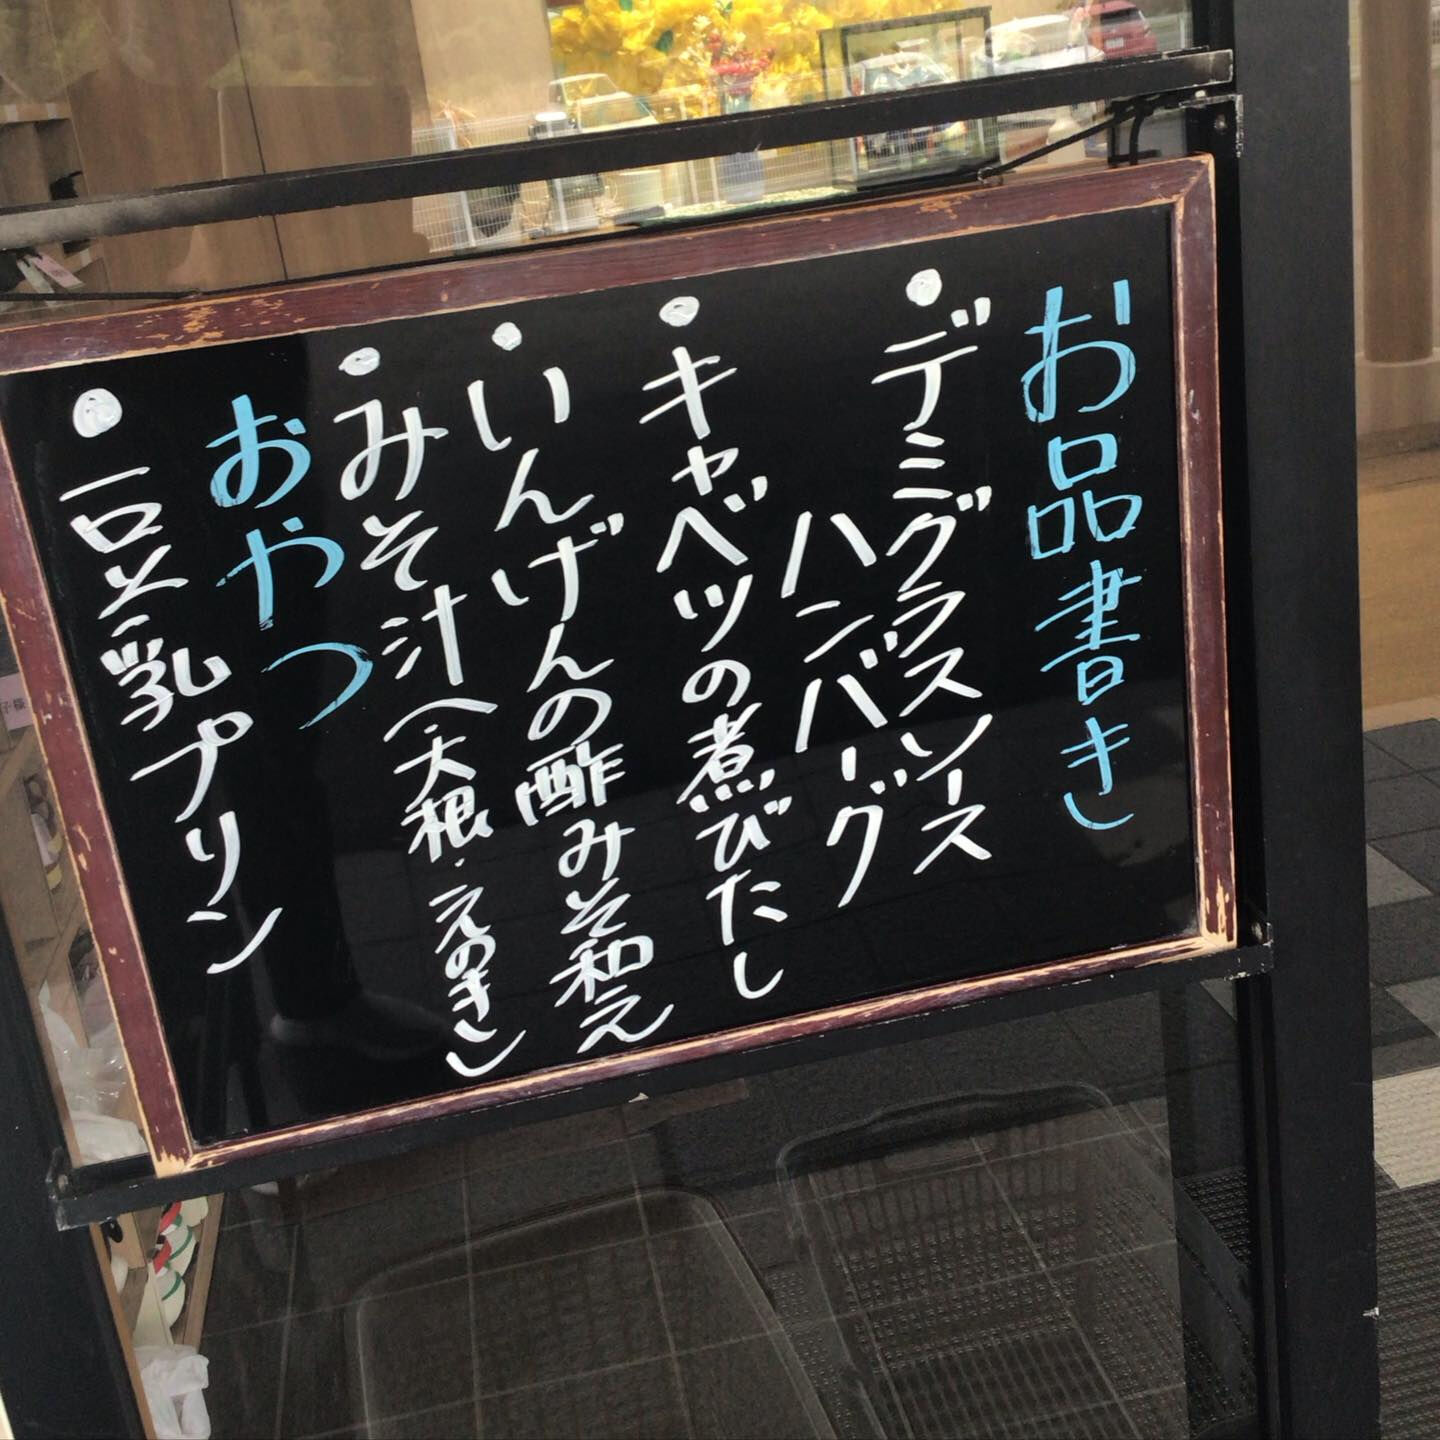 お品書き
・デミグラスソース
ハンバーグ
・キャベツの煮びたし
・いんげんの酢みそ和え
・みそ汁(大根・えのき)
おやつ
・豆乳プリン